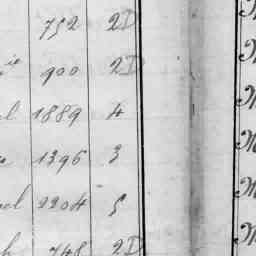 752 2D
ie 900 2D
l 1889 4 M
1396 3 M
el 2204 5 M
h 748 2D M